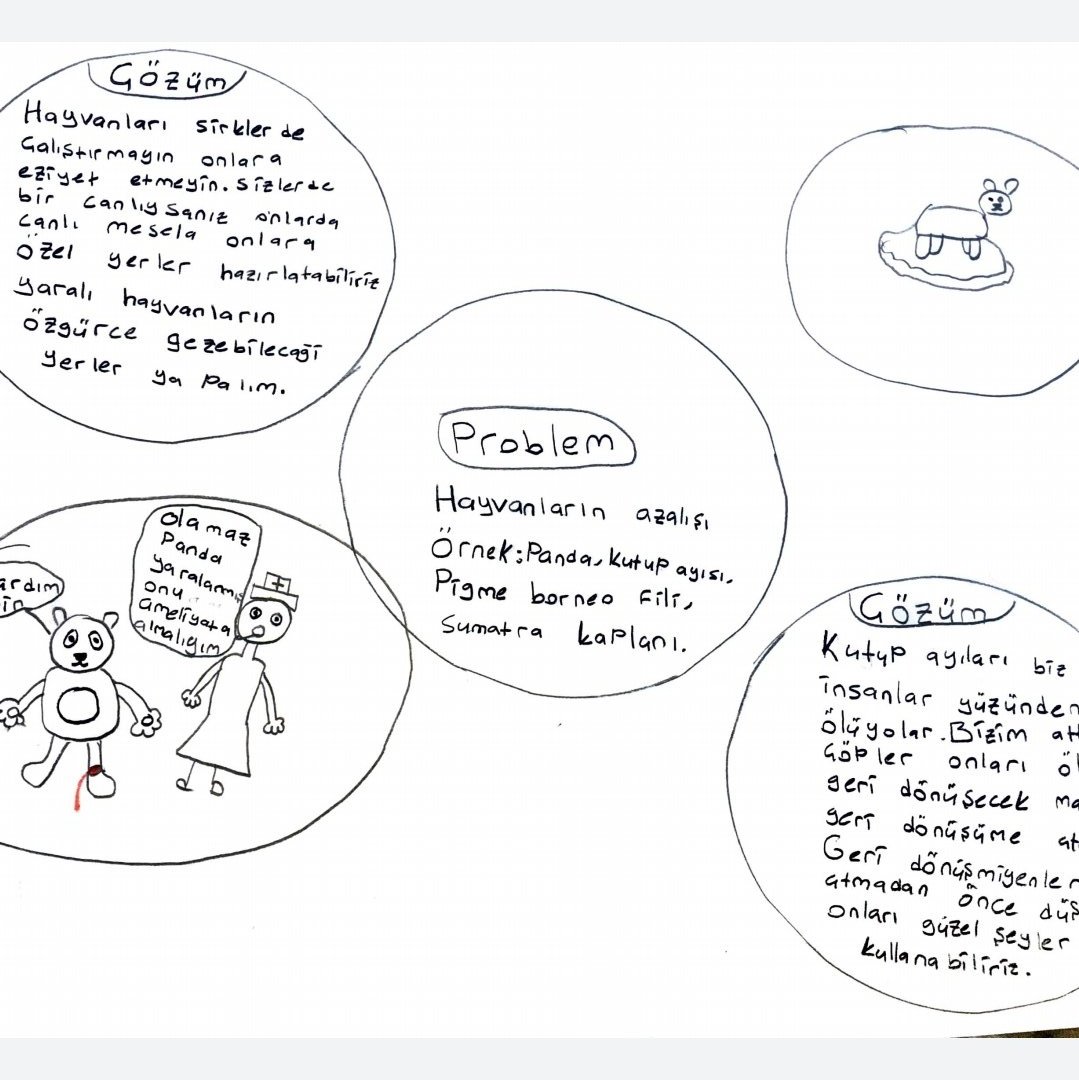 Çözüm
Hayvanları sirklerde
Çalıştırmayın onlara
eziyet etmeyin. sizlerde
bir canlıysanız onlarda
canlı mesela onlara
özel yerler hazırlatabiliriz
yaralı hayvanların
özgürce gezebileceği
yerler yapalım.
Problem
Hayvanların azalışı
Örnek: Panda, kutup ayısı,
Pigme borneo Fili,
Sumatra kaplanı.
olamaz
Panda
yaralanmış
onu
ameliyata
almalıyım
ardım
in
Çözüm
Kutup ayıları biz
insanlar yüzünden
ölüyolar. Bizim att
Çöpler onları öl
geri dönüşecek ma
geri dönüşüme at
Geri dönüşmiyenler
atmadan önce düş
onları güzel şeyler
kullanabiliriz.